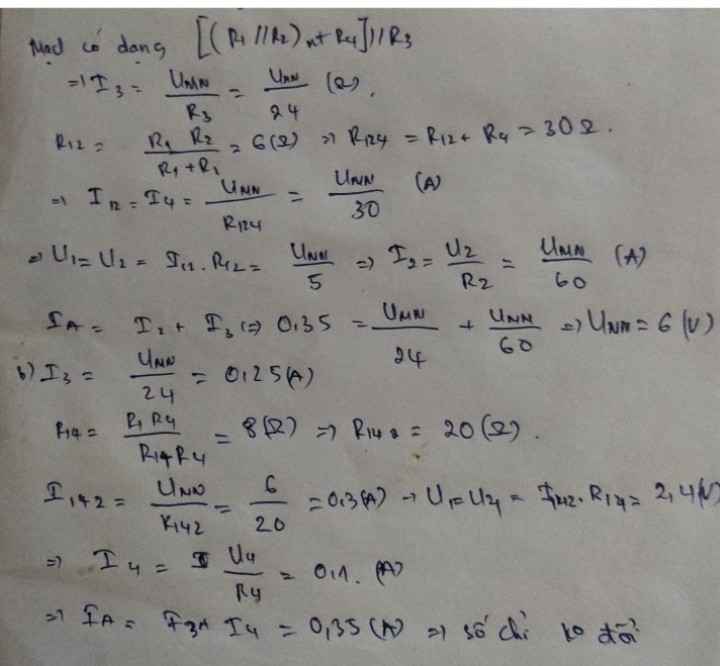 Mạch có dạng [(R1 // R2) nt R4] // R3
=> I3 = UMN / R3 = UMN / 24 (Ω).
R12 = R1 R2 / R1 + R2 = 6 (Ω) => R124 = R12 + R4 = 30 Ω.
=> I12 = I4 = UMN / R124 = UMN / 30 (A)
=> U1 = U2 = I12 . R12 = UMN / 5 => I2 = U2 / R2 = UMN / 60 (A)
IA = I2 + I3 <=> 0,35 = UMN / 24 + UMN / 60 => UMN = 6 (V)
b) I3 = UMN / 24 = 0,25 (A)
R14 = R1 R4 / R1 + R4 = 8 (Ω) => R142 = 20 (Ω).
I142 = UMN / R142 = 6 / 20 = 0,3 (A) -> U1 = U4 = I142 . R14 = 2,4 (V)
=> I4 = U4 / R4 = 0,1. (A)
=> IA = I3 + I4 = 0,35 (A) => số chỉ ko đổi